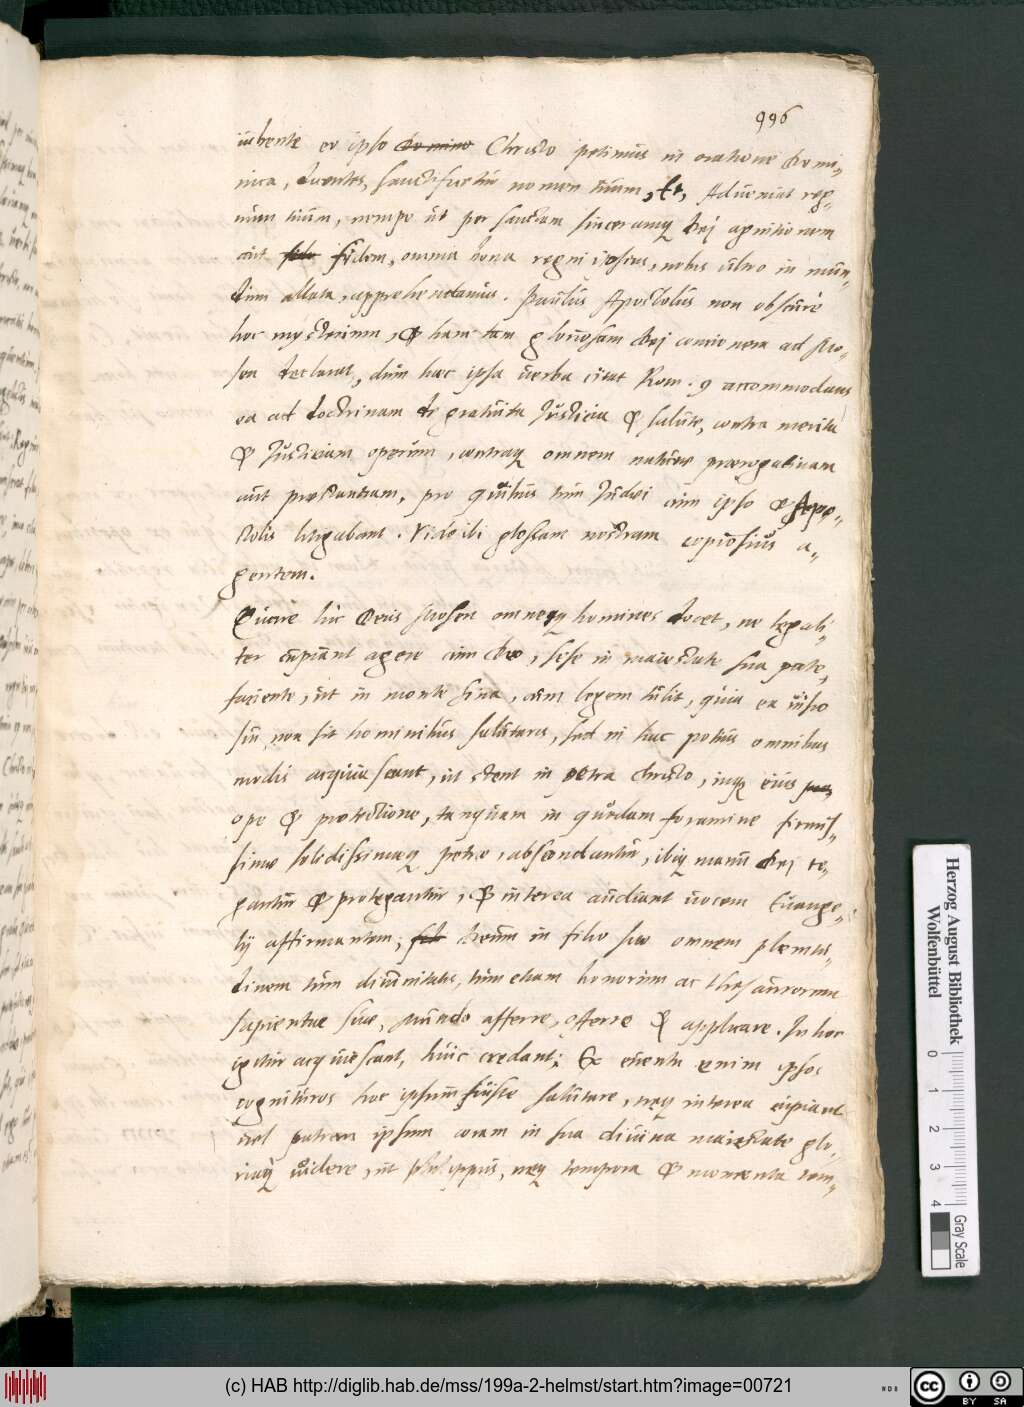 996
iubente eo ipso domino Christo petimus in oratione domi-
nica, dicentes, sanctificetur nomen tuum, etc, Adueniat reg-
num tuum, nempe ut per sanctam sinceramq Dej agnitionem
aut fide fidem, omnia bona regni ipsius, nobis ultro in mun-
dum allata, apprehendamus. Paulus Apostolus non obscure
hoc mysterium, & hanc tam gloriosam Dej concionem ad Mo-
sen declarat, dum haec ipsa uerba citat Rom. 9 accommodans
ea ad doctrinam de gratuita Justicia & salute, contra merita
& Justiciam operum, contraq omnem naturae praerogatiuam
aut praestantiam, pro quibus tum Judaei cum ipso & Apo-
stolis litigabant. Vide ibi glossam nostram copiosius a-
gentem.
Quare hic Deus Mosen omnesq homines docet, ne legali-
ter cupiant agere cum Deo, sese in maiestate sua pate-
faciente, ut in monte Sina, cum legem tulit, quia ea uisio
sui non sit hominibus salutaris, sed in hac potius omnibus
modis acquiescant, ut stent in petra Christo, inq eius
ope & protectione, tanquam in quodam foramine firmis-
simae solidissimaeq petrae, abscondantur, ibiq manu Dej te-
gantur & protegantur, & interea audiant uocem Euange-
lij affirmantem, Deum in filio suo omnem plenitu-
dinem tum diuinitatis, tum etiam honorum ac thesaurorum
sapientiae suae, mundo afferre, offerre & applicare. In hoc
igitur acquiescant, huic credant; Ex euentu enim ipsos
cognituros hoc ipsum fuisse salutare, neq interea cupiant
uel patrem ipsum coram in sua diuina maiestate glo-
riaq uidere, ut Philippus, neq tempora & momenta tem-
Herzog August Bibliothek
Wolfenbüttel
0 1 2 3 4
Gray Scale
(c) HAB http://diglib.hab.de/mss/199a-2-helmst/start.htm?image=00721
cc BY SA